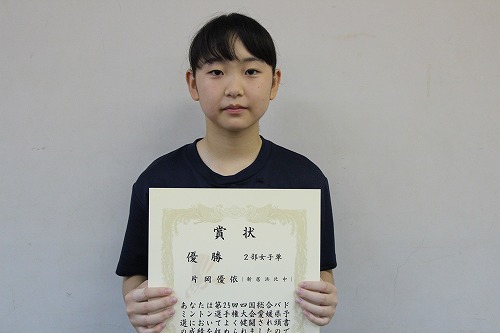 賞状
優勝 2部女子単
片岡優依(新居浜北中)
あなたは第25回四国総合バド
ミントン選手権大会愛媛県予
選においてよく健闘され頭書